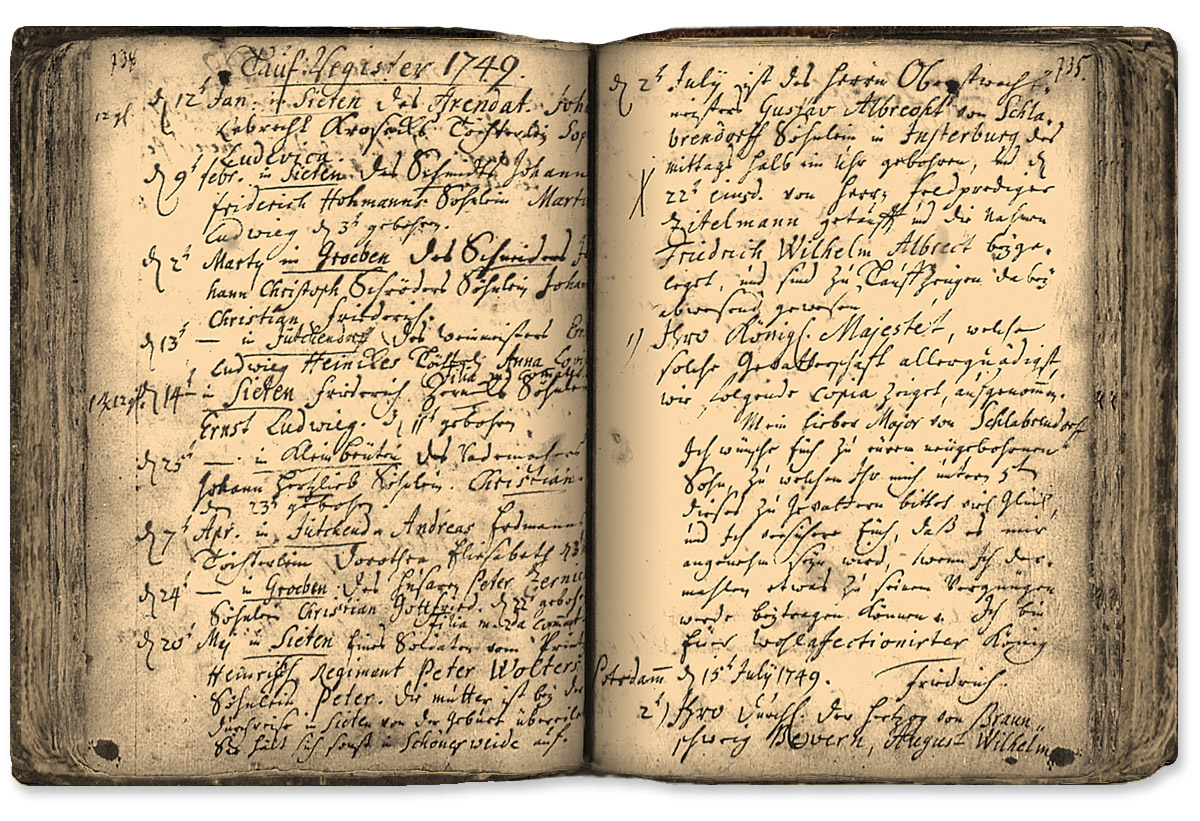 734
Tauf-Register 1749.
12 gl
d 12t Jan. in Sieten des Arendat. Joh
Lebrecht Töchterlein Sop
Ludovica.
d 9t Febr. in Sieten des Schmidts Johann
Friderich Hohmanns Söhnlein Marti
Ludwieg d 3t gebohren.
d 2t Marty in Groeben des Schneiders J
hann Christoph Schröders Söhnlein Johan
Christian Friederich.
d 13t — in Jütchendorff des Weinmeisters
Ludwieg Heinickes Töchterl. Anna
d 14t in Sieten Friederich Söhnlein
Ernst Ludwieg. d 11t gebohren
d 25t — in Kleinbeuten des Rademachers
Johann Söhnlein. Christian.
den 23t gebohren
d 7t Apr. in Jütchend. Andreas Erdmanns
Töchterlein Dorothea Eliesabeth
d 24t — in Groeben des Husaren Peter Zernic
Söhnlein Christian Gottfried. d 22t gebohr
d 20t Maj in Sieten Eines Soldaten vom Print
Heinrichs Regiment Peter Wolters
Söhnlein Peter. Die Mutter ist bey der
durchreise in Sieten von der Geburt übereile
Sie hält sich sonst in Schönerweide auf.
735.
d 2t July ist des Herrn Oberstwacht-
meisters Gustav Albrecht von Schla-
brendorff Söhnlein in Insterburg des
mittags halb ein Uhr gebohren, und d
22t ejusd. von Herrn Feldprediger
Zitelmann getaufft und die Nahmen
Friedrich Wilhelm Albrecht beyge-
leget, und sind zu Tauf Zeugen dabey
abwesend gewesen
1) Ihro Königl. Majestet, welche
solche Gevatterschaft allergnädigst
wie folgende Copia zeiget, aufgenomm.
Mein lieber Major von Schlabrendorff
Ich wünsche Euch zu euren neugebohrnen
Sohn, zu welchen Ihr mich unterm 5ten
dieses zu Gevattern bittet viel Glück,
und Ich versichere Euch, daß es mir
angenehm seyn wird, wenn Ich der-
mahlen etwas zu seinem Vergnügen
werde beytragen können. Ich bin
Euer wohlaffectionirter König
Potsdam d 15t July 1749. Friedrich.
2) Ihro Durchl. der Hertzog von Braun
schweig Bevern, August Wilhelm